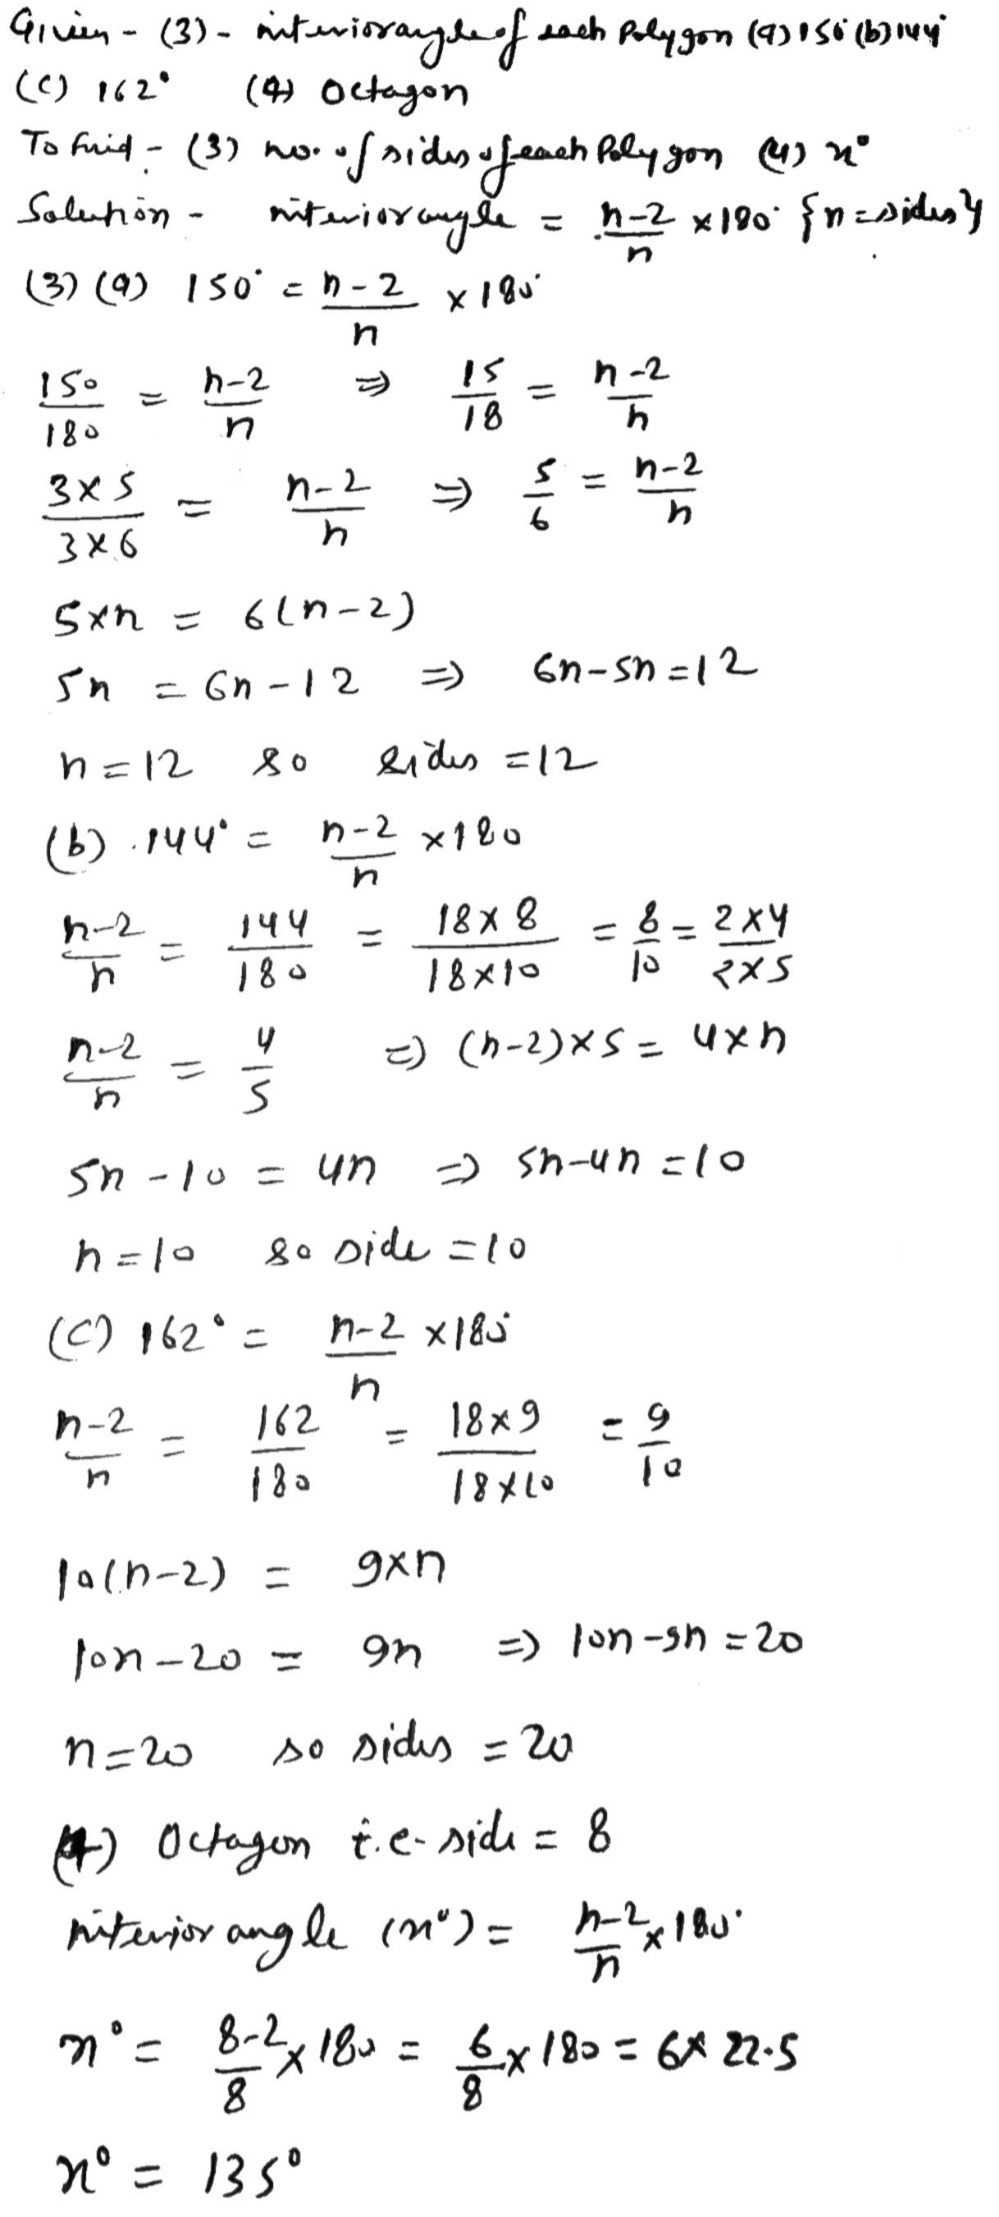 Given - (3) - interior angle of each Polygon (a) 150° (b) 144°
(C) 162° (4) Octagon
To find - (3) no. of sides of each Polygon (4) x°
Solution - interior angle = n-2/n × 180° {n = sides}
(3) (a) 150° = n-2/n × 180°
150/180 = n-2/n ⇒ 15/18 = n-2/n
3×5/3×6 = n-2/n ⇒ 5/6 = n-2/n
5×n = 6(n-2)
5n = 6n-12 ⇒ 6n-5n=12
n=12 so sides =12
(b) 144° = n-2/n ×180
n-2/n = 144/180 = 18×8/18×10 = 8/10 = 2×4/2×5
n-2/n = 4/5 ⇒ (n-2)×5 = 4×n
5n-10 = 4n ⇒ 5n-4n=10
n=10 so side =10
(C) 162° = n-2/n ×180°
n-2/n = 162/180 = 18×9/18×10 = 9/10
10(n-2) = 9×n
10n-20 = 9n ⇒ 10n-9n=20
n=20 so sides = 20
(4) Octagon i.e- side = 8
interior angle (x°) = n-2/n × 180°
x° = 8-2/8 × 180 = 6/8 × 180 = 6× 22.5
x° = 135°